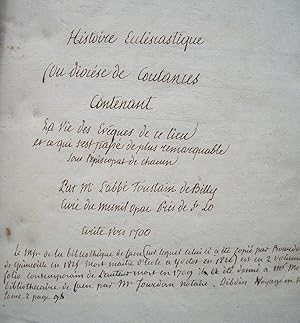 Histoire Eclésiastique
du diocése de Coutances
Contenant
La Vie des Evêques de ce lieu
et ce qui s'est passé de plus remarquable
sous l'episcopat de chacun
Par Mr Labbé Toustain de Billy
Curé du mesnil opac Près de St Lo
écrite vers 1700
le mss. de la bibliothèque de Caen sur lequel celui ci a été copié par
de Guinéville en 1825 mort maitre d'école à Yvetot en 1826) est en 2 volumes
folio contemporains de L'auteur mort en 1709 il a été donné à Mr
bibliothécaire de Caen par Mr Tourdan notaire, Dibdin Voyage en
tome 2 page 96